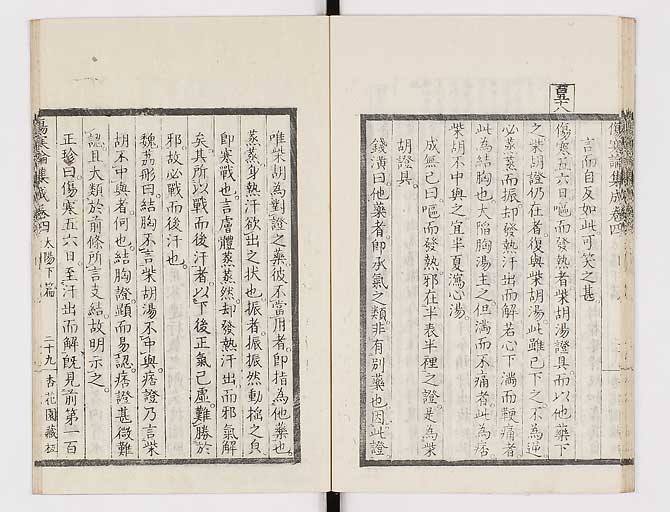 百五十八
言而自反如此可笑之甚
傷寒五六日嘔而發熱者柴胡湯證具而以他藥下
之柴胡證仍在者復與柴胡湯此雖已下之不為逆
必蒸蒸而振却發熱汗出而解若心下滿而鞕痛者
此為結胸也大陷胸湯主之但滿而不痛者此為痞
柴胡不中與之宜半夏瀉心湯
成無己曰嘔而發熱邪在半表半裡之證是為柴
胡證具
錢潢曰他藥者即承氣之類非有別藥也因此證
唯柴胡為對證之藥彼不當用者即指為他藥也
蒸蒸身熱汗欲出之狀也振者振振然動搖之貌
即寒戰也言膚體蒸蒸然却發熱汗出而邪氣解
矣其所以戰而後汗者以下後正氣已虛難勝於
邪故必戰而後汗也
魏荔彤曰結胸不言柴胡湯不中與痞證乃言柴
胡不中與者何也結胸證顯而易認痞證甚微難
認且大類於前條所言支結故明示之
正珍曰傷寒五六日至汗出而解既見前第一百
傷寒論集成卷四 太陽下篇 二十九 杏花園藏板